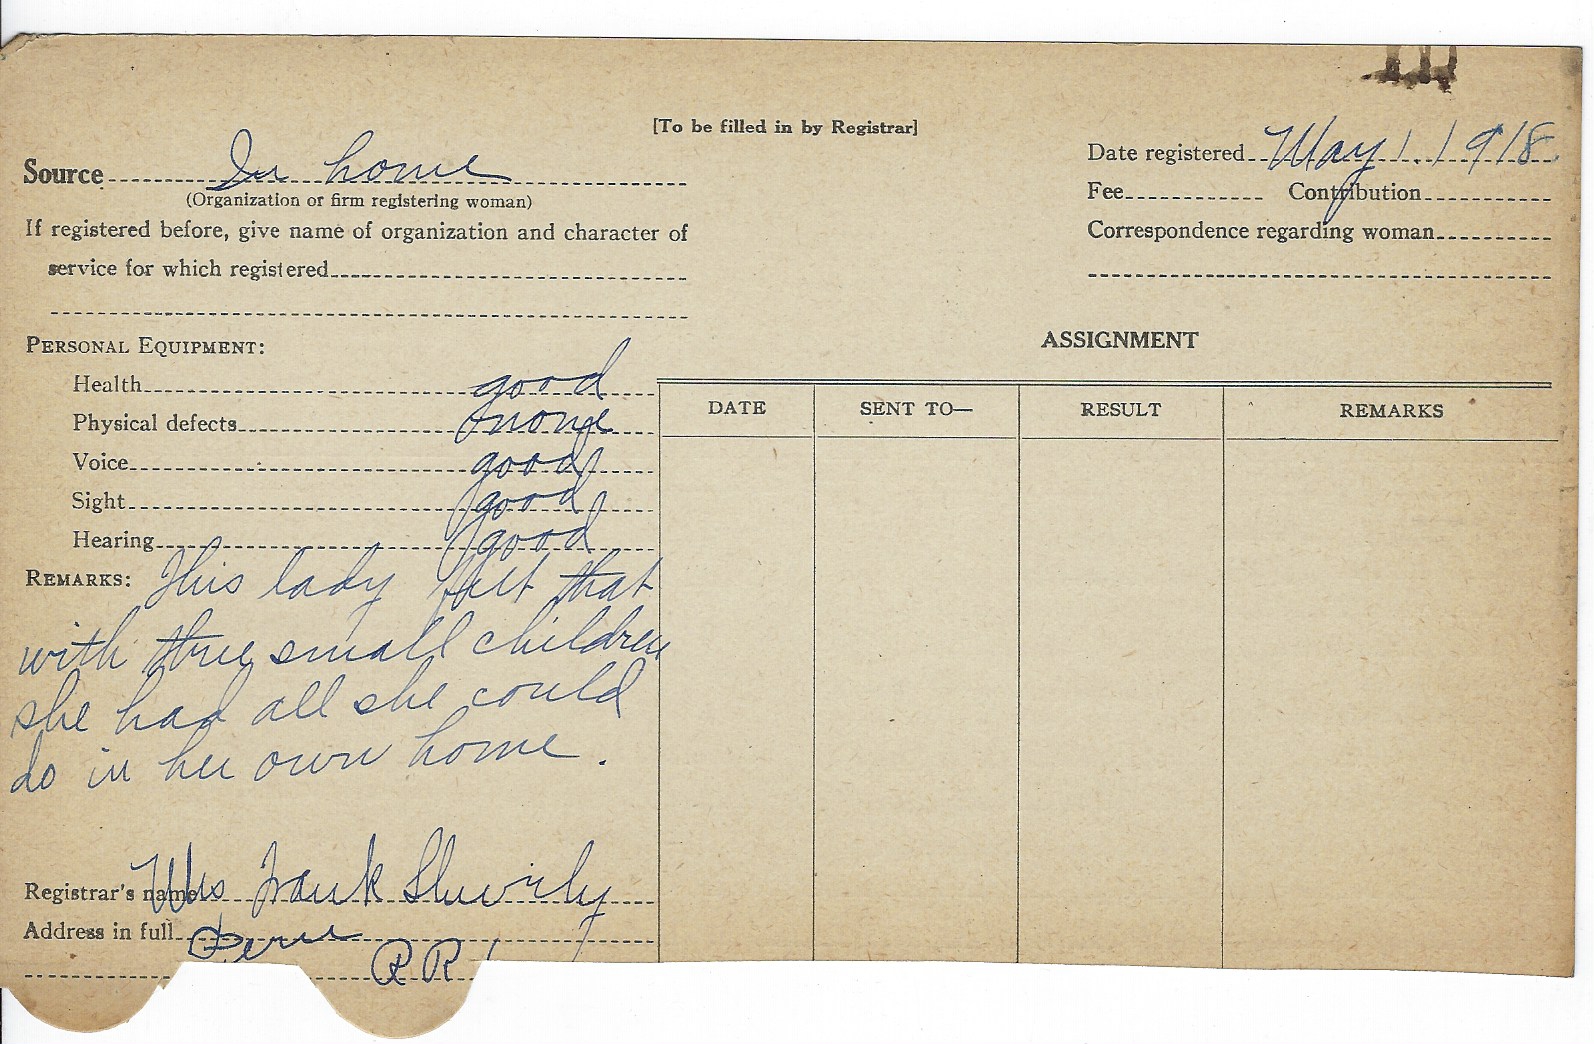 [To be filled in by Registrar]
Source In home
(Organization or firm registering woman)
If registered before, give name of organization and character of
service for which registered
Date registered May 1. 1918
Fee Contribution
Correspondence regarding woman
PERSONAL EQUIPMENT:
Health good
Physical defects none
Voice good
Sight good
Hearing good
REMARKS: This lady felt that
with three small children
she had all she could
do in her own home.
Registrar's name Mrs Frank
Address in full Peru
RR 1
ASSIGNMENT
DATE SENT TO— RESULT REMARKS